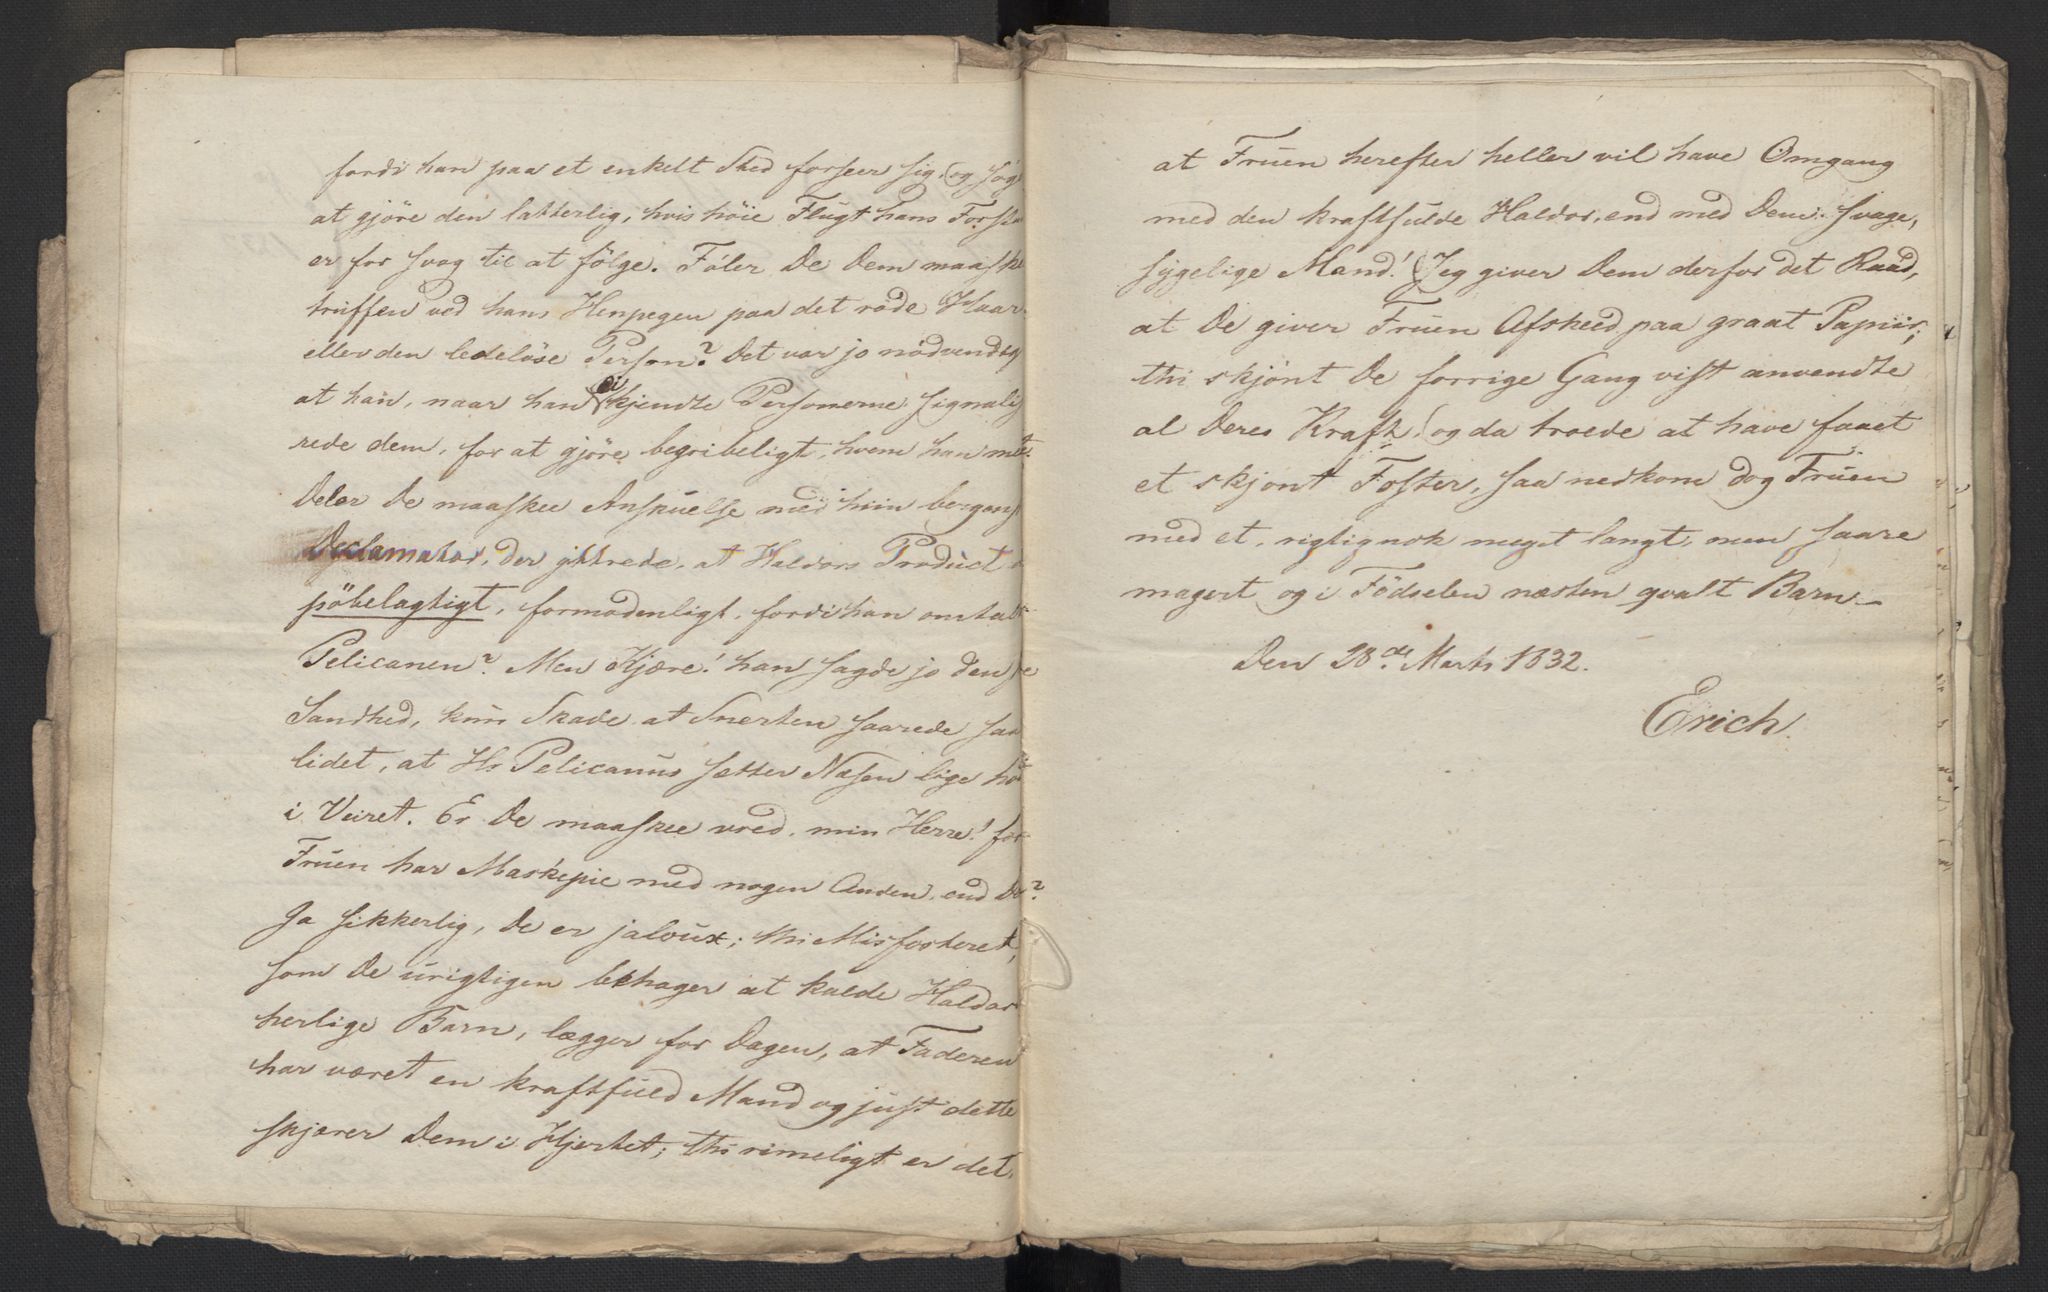 fordi han paa et enkelt Sted forseer sig, og søg
at gjöre den latterlig, hvis höie Flugt hans Forsta
er for svag til at fölge. Föler De Dem maaske
truffen ved hans Henpegen paa det röde Haar
eller den ledelöse Person? Det var jo nödvendig
at han, naar han ei kjendte Personerne signali
rede dem, for at gjöre begribeligt, hvem han meen
Deler De maaskee Anskuelse med hiin bergens
Declamator, der yttrede, at Haldors Product
pöbelagtigt, formodentligt, fordi han omtal
Pelicanen? Men Kjære! han sagde jo den re
Sandhed, kun Skade at Snerten saarede saa
lidet, at Hr Pelicanus sætter Næsen lige höi
i Veiret. Er De maaskee vred, min Herre! for
Fruen har Maskepie med nogen Anden, end De?
Ja sikkerlig, De er jaloux; thi Misfosteret,
som De urigtigen behager at kalde Haldor
herlige Barn, lægger for Dagen, at Faderen
har været en kraftfuld Mand og just dette
skjærer Dem i Hjertet; thi rimeligt er det,
at Fruen herefter heller vil have Omgang
med den kraftfulde Haldor, end med Dem, svage,
sygelige Mand! Jeg giver Dem derfor det Raad,
at De giver Fruen Afskeed paa graat Papiir;
thi skjönt De forrige Gang vist anvendte
al Deres Kraft, og da troede at have faaet
et skjönt Foster, saa nedkom dog Fruen
med et, rigtignok meget langt, men saare
magert og i Födselen næsten qvalt Barn
Den 28de Marts 1832.
Erich